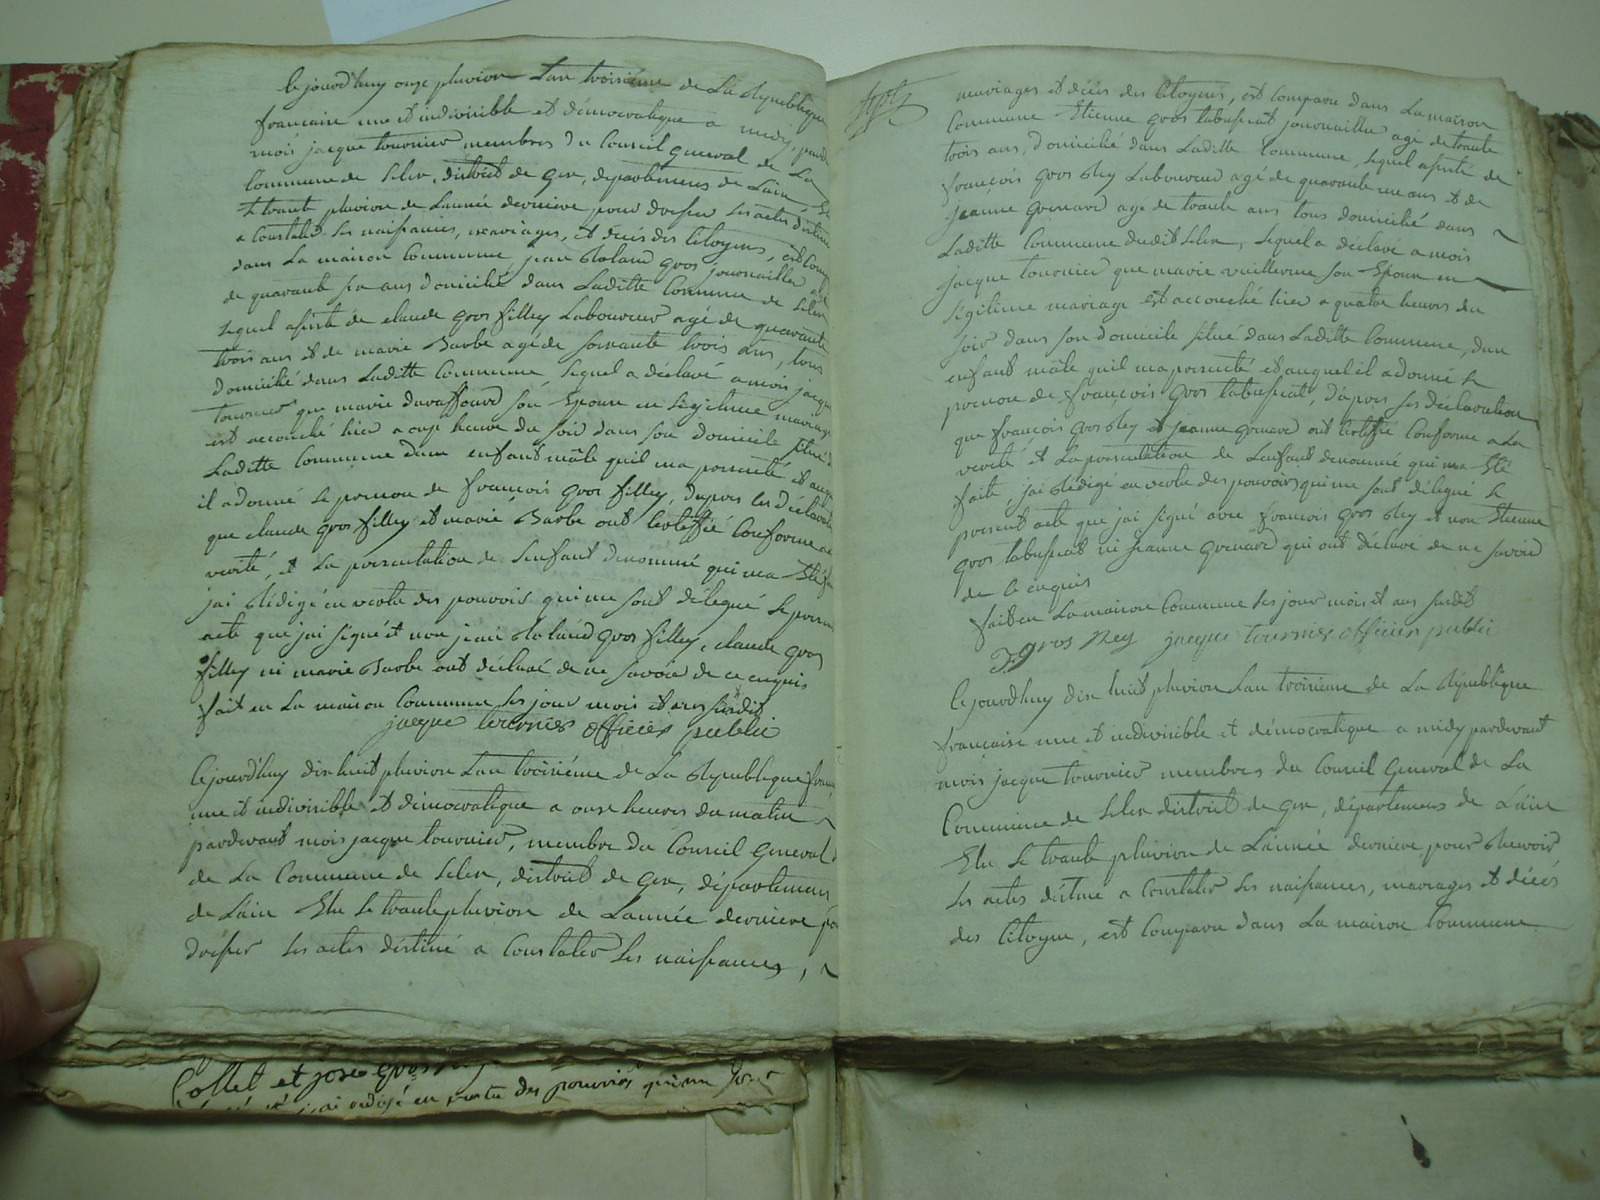 Cejourd'huy onze pluviose Lan troisiéme de La Republique
francaise une et indivisible et démocratique a midy, parde
mois jacque tournier membres du Conseil general de La
Commune de Lelex, district de gex, departemens de Lain, Elu
Le trante pluviose de Lannée derniere pour dresser les actes destiné
a Constater les naissances, mariages, et décés des Citoyens, est Comp
dans La maison Commune, jean Roland gros journaillier agé
de quarante six ans domicilié dans Laditte Commune de Lelex
Lequel assisté de claude gros fillex Laboureur agé de quarante
trois ans et de marie Barbe agé de soixante trois ans, tous
domicilié dans Laditte Commune Lequel a déclaré a mois jacque
tournier que marie davaffourd son Epouse en Legitime mariage
est accouché hier a onze heure du soir dans son domicile situé d
Laditte Commune dun enfant mâle quil ma presenté et auquel
il a donné le prenon de françois gros fillex, dapres les déclaration
que claude gros fillex et marie Barbe ont Certiffié Conforme a
verité, et La presentation de Lenfant denommé qui ma Eté fai
jai Rédigé en vertu des pouvoir qui me sont délegué Le presen
acte que jai signé et non jean Roland gros fillex, claude gros
fillex ni marie Barbe ont déclaré de ne savoir de ce enquis
fait en La maison Commune Les jour mois et ans susdit
jacque tournier officier public
Cejourd'huy dix huit pluviose Lan troisiéme de La Republique franc
une et indivisible et démocratique a onze heures du matin
pardevant mois jacque tournier, membre du Conseil general
de La Commune de Lelex, district de gex, départemens
de Lain Elu Le trante pluviose de Lannée derniere po
dresser les actes destiné a Constater Les naissances,
mariages et décés des Citoyens, est Comparu dans La maison
Commune Etienne gros tabussiat journaillier agé de trante
trois ans, domicilié dans Laditte Commune, Lequel assisté de
françois gros Rey Laboureur agé de quarante un ans et de
jeanne grenard agé de trante ans tous domicilié dans
Laditte Commune dudit Lelex, Lequel a déclaré a mois
jacque tournier que marie vuillerme son Epouse en
Légitime mariage est accouché hier a quatre heures du
soir dans son domicile situé dans Laditte Commune, dun
enfant mâle quil ma presenté et auquel il a donné le
prenon de françois gros tabussiat, d'apres les déclaration
que françois gros Rey et jeanne grenard ont Certiffié Conforme a La
verité et La presentation de Lenfant denommé qui ma Eté
faite, jai Rédigé en vertu des pouvoirs qui me sont délegué Le
present acte que jai signé avec françois gros Rey et non Etienne
gros tabussiat ni jeanne grenard qui ont déclaré de ne savoir
de ce enquis
fait en La maison Commune Les jour mois et ans susdit
F. gros Rey jacque tournier officier public
Cejourd'huy dix huit pluviose Lan troisiéme de La République
française une et indivisible et démocratique a midy pardevant
mois jacque tournier membres du Conseil general de La
Commune de Lelex district de gex, départemens de L'ain
Elu Le trante pluviose de Lannée derniere pour Recevoir
Les actes déstiné a Constater Les naissances, mariages et décés
des Citoyens, est Comparu dans La maison Commune
Collet et jose gros
jai redigé en vertu des pouvoirs qui me sont